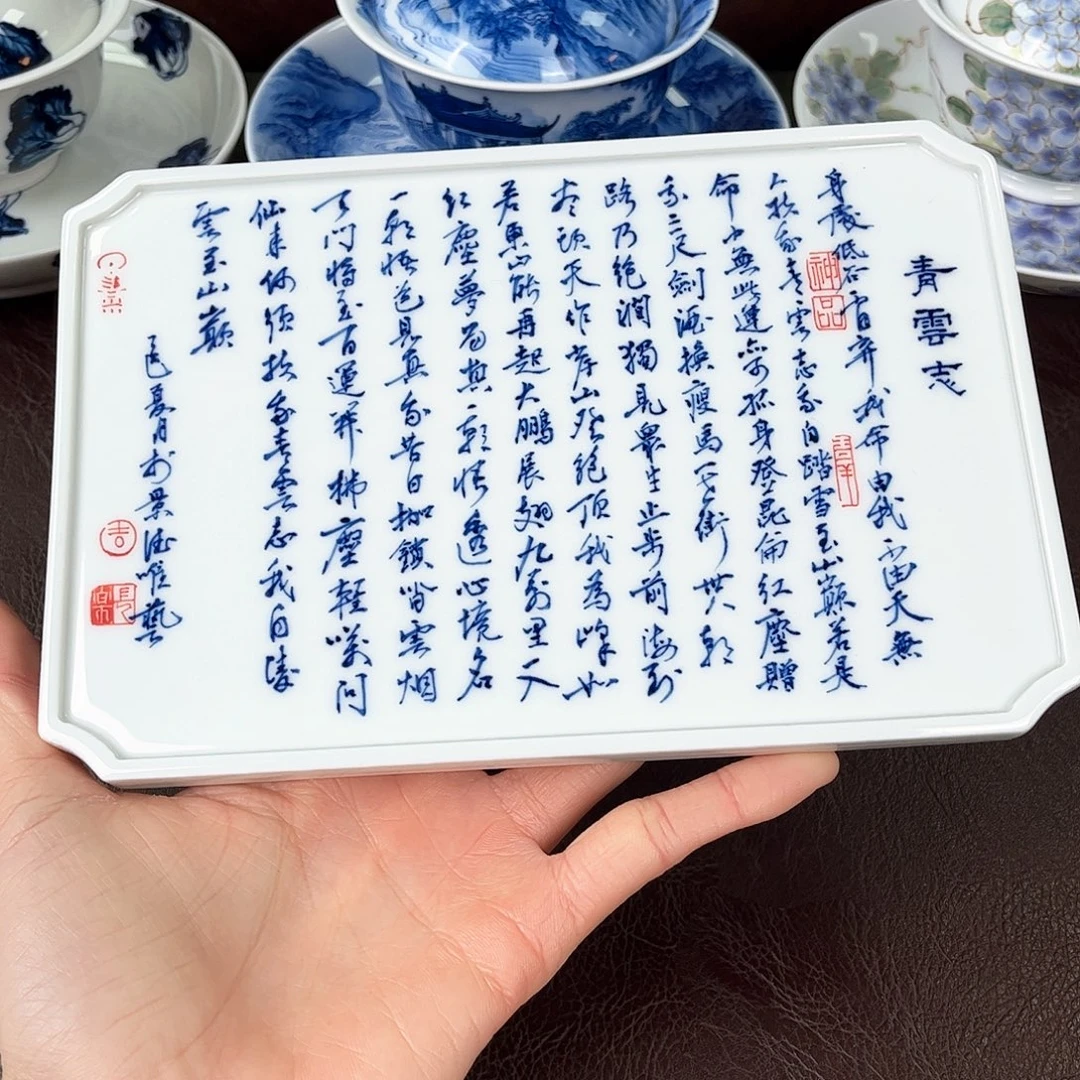 青雲志
身處低谷不自弃我命由我不由天無
人扶我青雲志我自踏雪至山巔若是
命中無此運亦可孤身登昆侖紅塵贈
我三尺劍酒換瘦馬一街世人朝
路乃絕澗獨見眾生止步前海到
盡頭天作岸山登絕頂我為峰如
若東山能再起大鵬展翅九萬里一入
紅塵夢易真一朝悟透心境名
一朝悟道見真我昔日枷鎖皆雲烟
天門將至百運祥拂塵輕笑問
仙來你須扶我青雲志我自凌
雲至山巔
乙巳夏月於景德唯藝
神品
吉